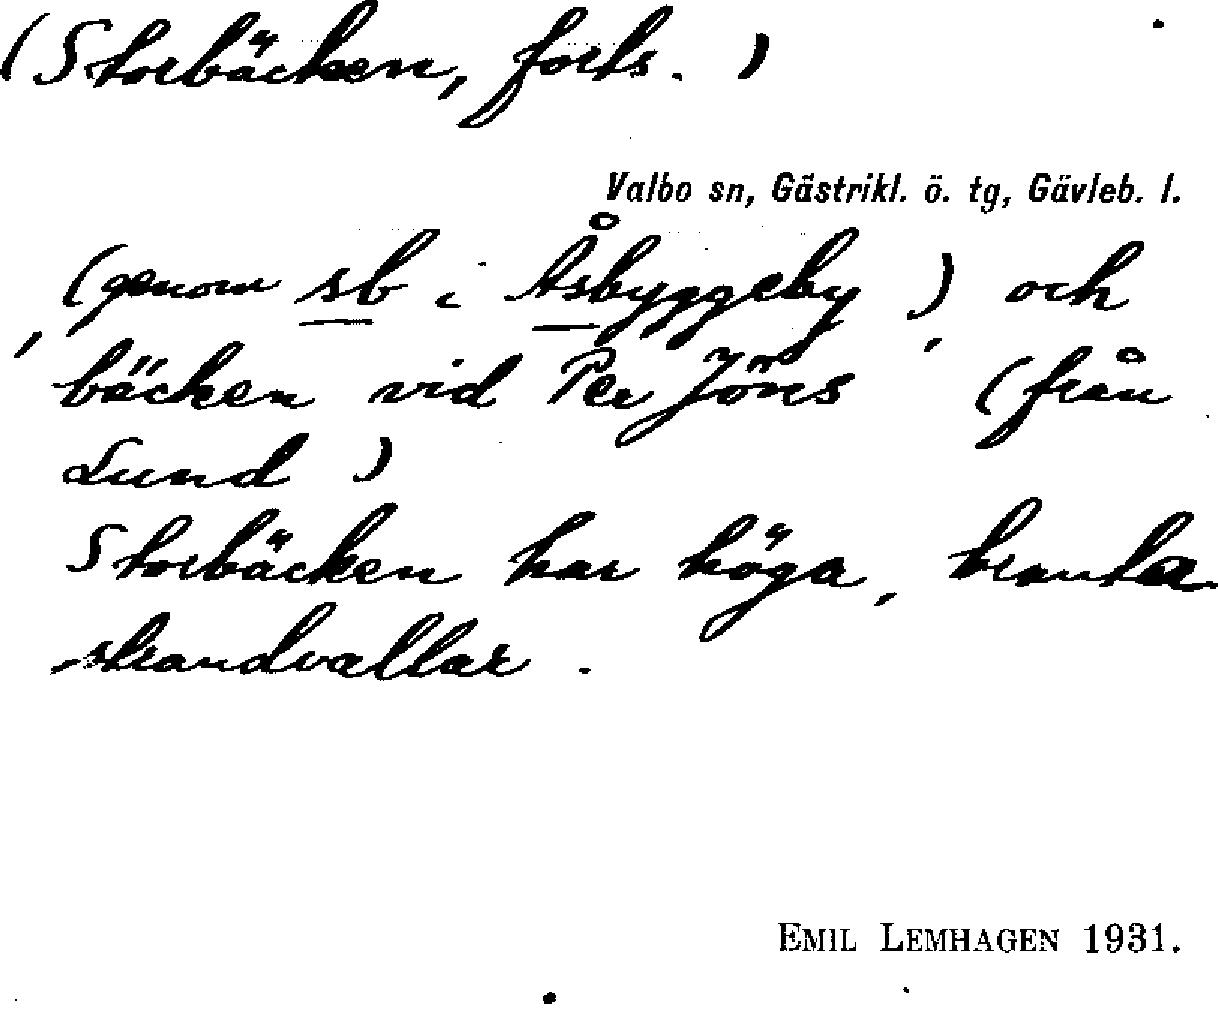 (Storbäcken, forts. )
Valbo sn, Gästrikl. ö. tg, Gävleb. l.
(genom sb i Åsbyggeby ) och
bäcken vid Per Jöns (från
Lund )
Storbäcken har höga, branta
strandvallar .
EMIL LEMHAGEN 1931.